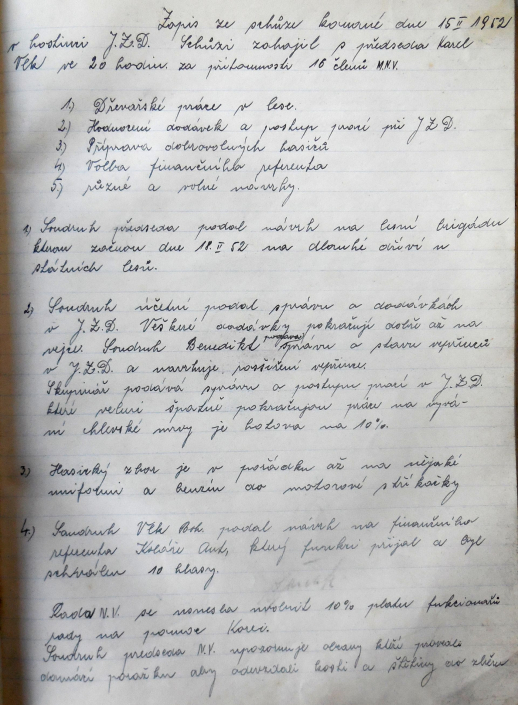 Zápis ze schůze konané dne 15 II 1952
v hostinci J.Z.D. Schůzi zahajil s předseda Karel
Vlk ve 20 hodin. za přítomnosti 16 členů M.N.V.
1) Dřevařské práce v lese.
2) Hodnocení dodávek a postup prací při J Z D.
3) Příprava dobrovolných hasičů
4) Volba finančního referenta
5) různé a volné návrhy.
1) Soudruh předseda podal návrh na lesní brigádu
kterou začnou dne 18. II 52 na dlouhé dříví u
státních lesů.
2) Soudruh účetní podal správu o dodávkách
v J.Z.D. Veškeré dodávky pokračují dobře až na
vejce. Soudruh Benedikt podává správu o stavu vepřinců
v J.Z.D. a navrhuje, rozšíření vepřince.
Skupinář podává správu o postupu prací v J.Z.D.
které velmi špatně pokračujou práce na vyvá-
ní chlevské mrvy je hotova na 10%.
3) Hasický zbor je v pořádku až na nějaké
uniformi a benzín do motorové stříkačky
4.) Soudruh Vlk Boh. podal návrh na finančního
referenta Koláře Ant, který funkci přijal a byl
schválen 10 hlasy.
Rada N.V. se usnesla uvolnit 10% platu funkcionářů
rady na pomoc Korei.
Soudruh předseda N.V. upozornuje občany kteří provedli
domácí porážku aby odevzdali kosti a štětiny do sběru